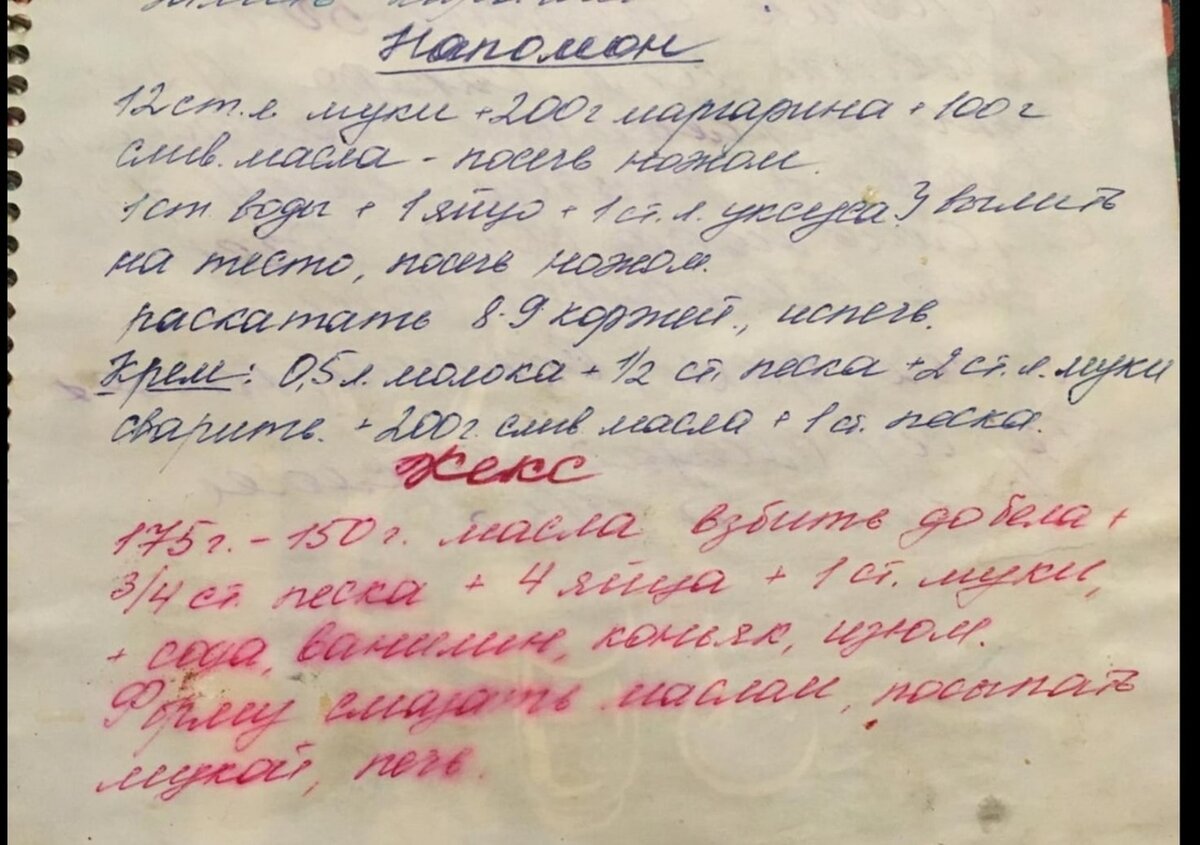 Напомон
12 ст.л. муки + 200 г маргарина + 100 г
слив. масла - посечь ножом.
1 ст. воды + 1 яйцо + 1 ст. л. уксуса } вылить
на тесто, посечь ножом.
раскатать 8-9 коржей., испечь.
Крем: 0,5 л. молока + 1/2 ст. песка + 2 ст. л. муки
сварить. + 200 г. слив масла + 1 ст. песка.
Кекс
175 г. - 150 г. масла взбить добела +
3/4 ст. песка + 4 яйца + 1 ст. муки,
+ сода, ванилин, коньяк, изюм.
Форму смазать маслом, посыпать
мукой, печь.